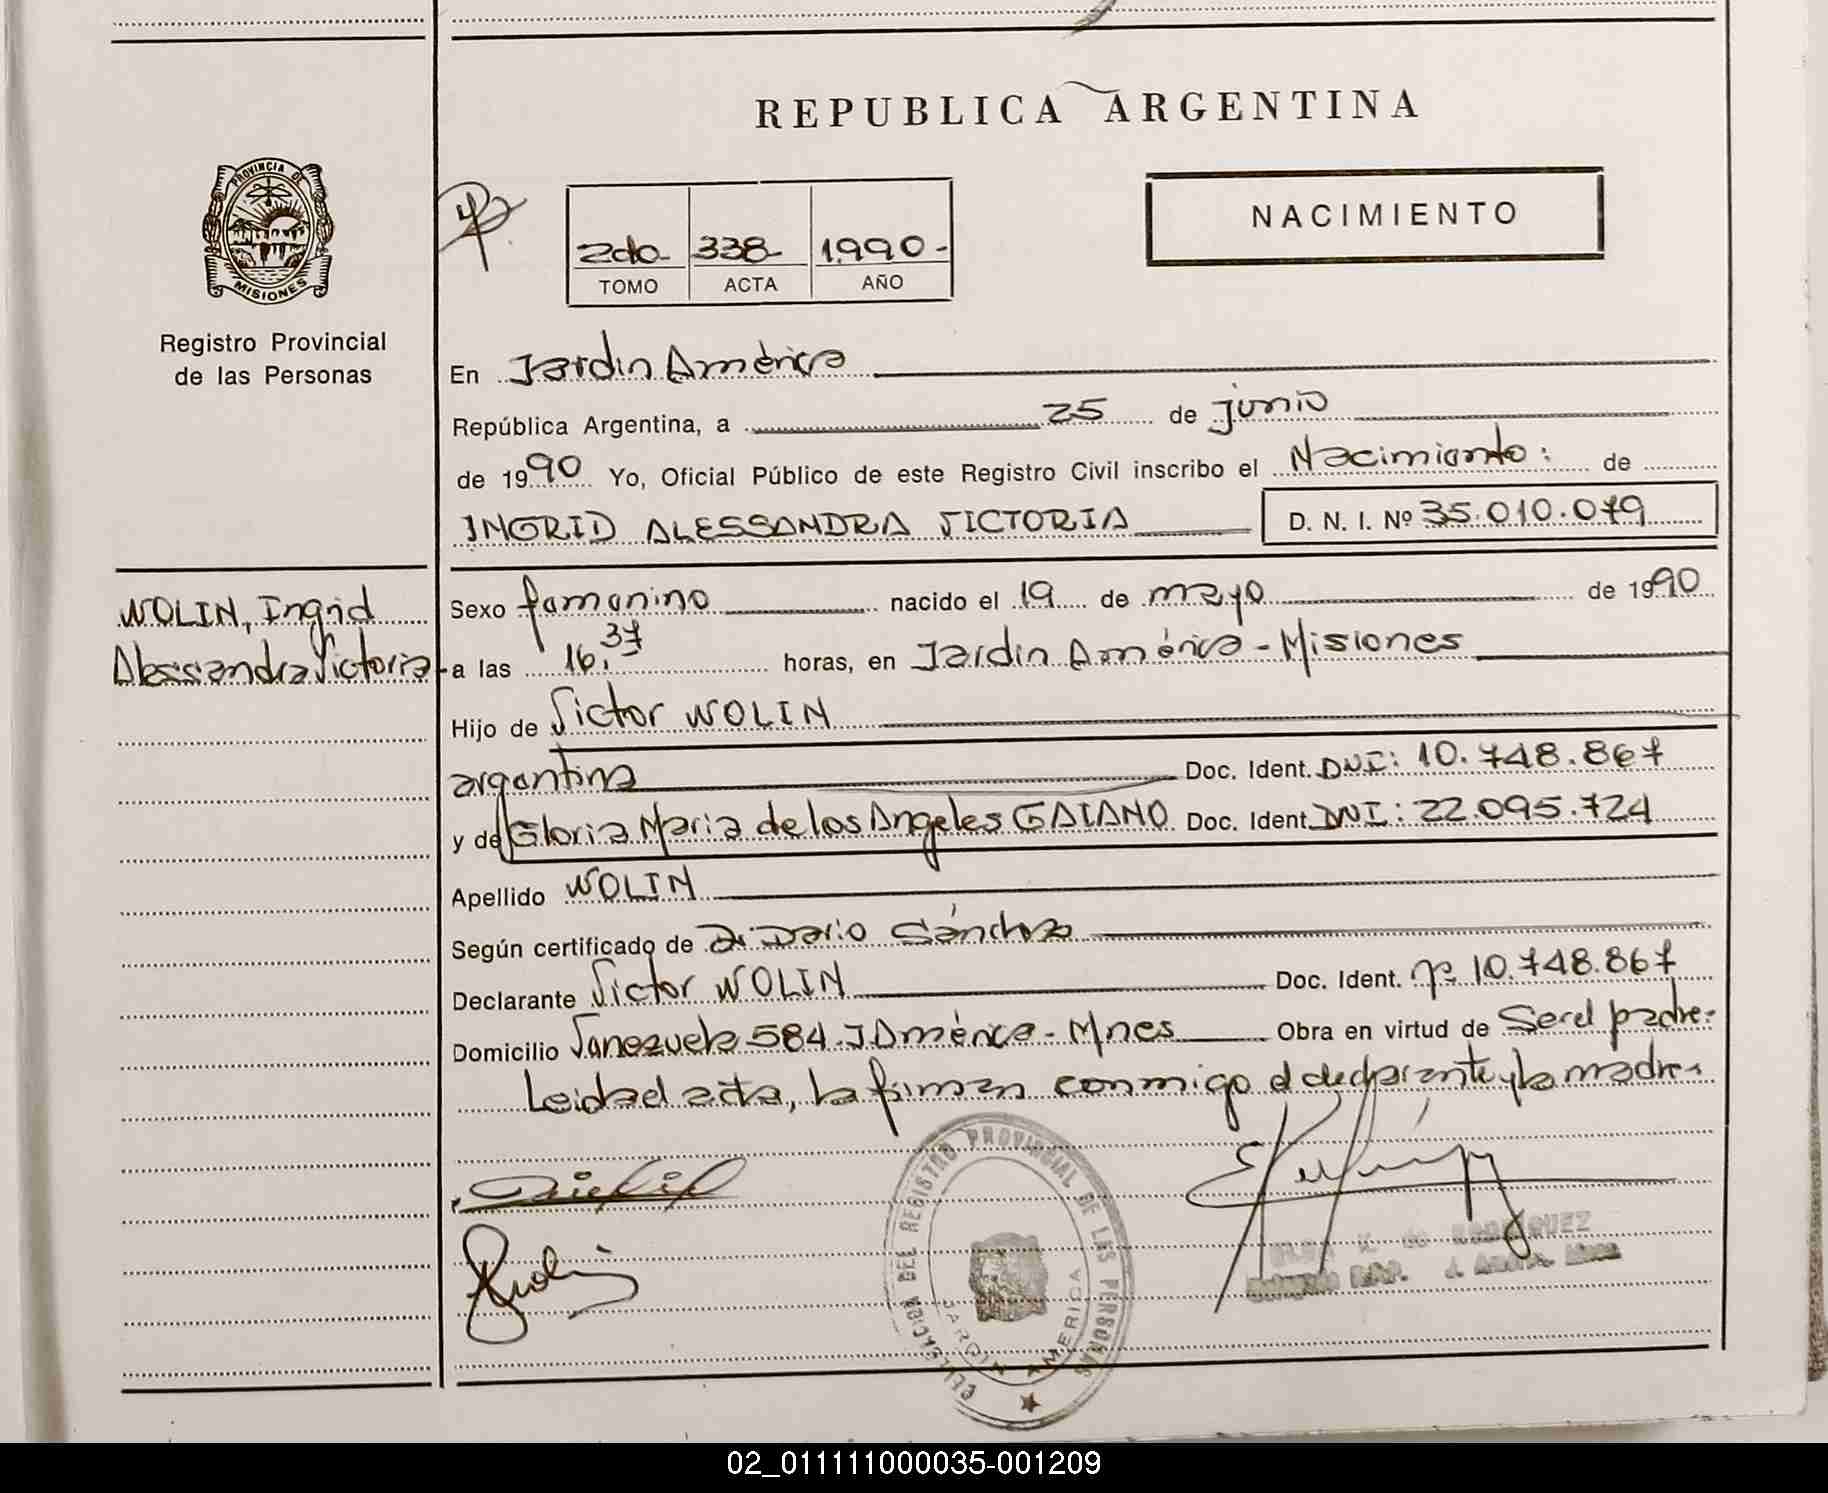 REPUBLICA ARGENTINA
PROVINCIA DE
MISIONES
Registro Provincial
de las Personas
2do- 338- 1.990-
TOMO ACTA AÑO
NACIMIENTO
En Jardin América
República Argentina, a 25 de junio
de 1990 Yo, Oficial Público de este Registro Civil inscribo el Nacimiento: de
INGRID ALESSANDRA VICTORIA D. N. I. Nº 35.010.079
WOLIN, Ingrid
Alessandra Victoria
Sexo femenino nacido el 19 de mayo de 1990
a las 16,37 horas, en Jardin América - Misiones
Hijo de Victor WOLIN
argentina Doc. Ident. DNI: 10.748.867
y de Gloria Maria de los Angeles GAIANO Doc. Ident. DNI: 22.095.724
Apellido WOLIN
Según certificado de Dr. Dario Sánchez
Declarante Victor WOLIN Doc. Ident. Nº 10.748.867
Domicilio Venezuela 584. J América - Mnes Obra en virtud de Ser el padre.
Leida el acta, la firman conmigo el declarante y la madre.
DELEGACION DEL REGISTRO PROVINCIAL DE LAS PERSONAS
JARDIN AMERICA
K. de RODRIGUEZ
R.P.P. J.
02_011111000035-001209